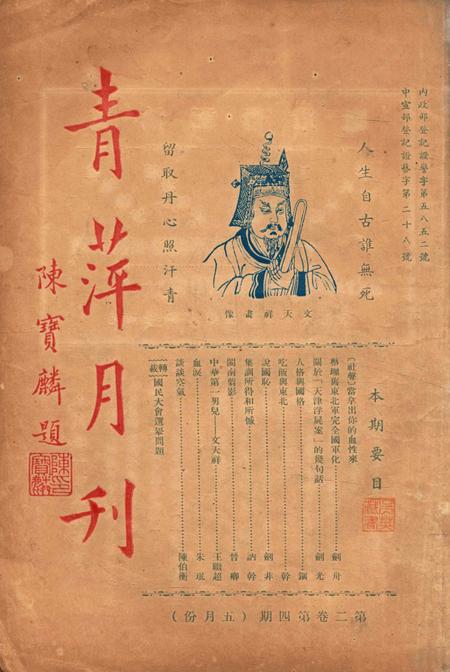 內政部登記證警字第五八五二號
中宣部登記證藝字第二十八號
人生自古誰無死
留取丹心照汗青
文天祥畫像
青萍月刊
陳寶麟題
陳印寶麟
本期要目
〔社聲〕當拿出你的血性來
與東北軍完全國軍化……劍舟
關於「天津浮屍案」的幾句話……劍光
人格與國格……鋼
吃飯與東北……幹
說國恥……劍非
集訓所得和所憾……訥幹
閩南剪影……曾卿
中華第一男兒——文天祥……王繼超
血淚……朱珉
談談空氣……陳伯衡
〔轉載〕國民大會選舉問題
第二卷第四期（五月份）